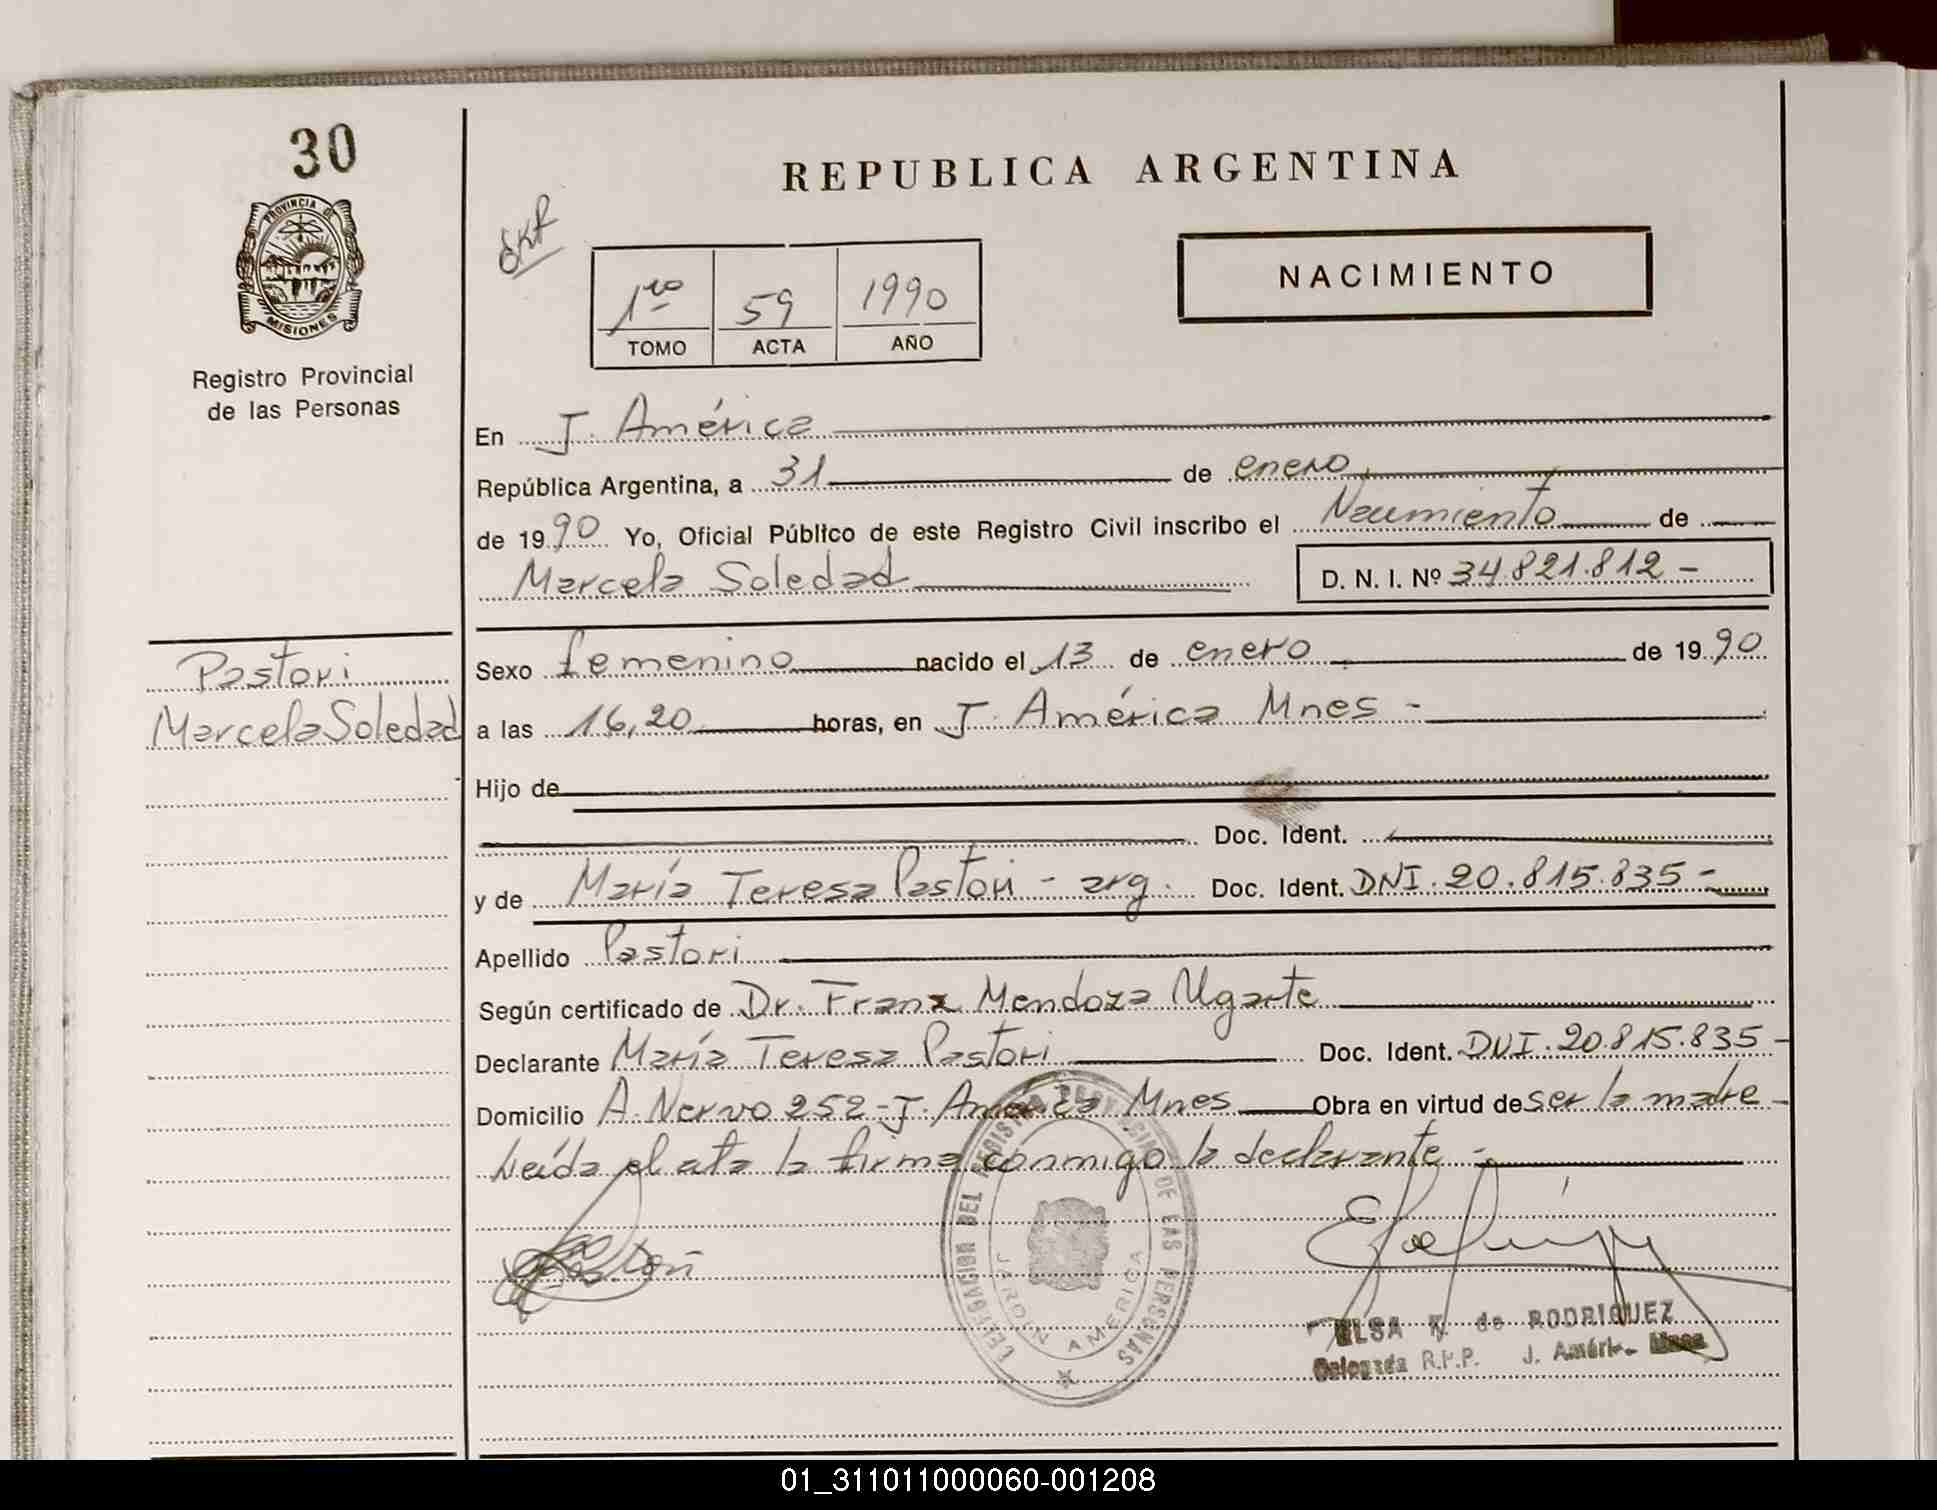 30
PROVINCIA DE
MISIONES
Registro Provincial
de las Personas
REPUBLICA ARGENTINA
NACIMIENTO
1ro 59 1990
TOMO ACTA AÑO
En J. América
República Argentina, a 31 de enero
de 1990 Yo, Oficial Público de este Registro Civil inscribo el Nacimiento de
Marcela Soledad D. N. I. Nº 34.821.812 -
Pastori
Marcela Soledad
Sexo femenino nacido el 13 de enero de 1990
a las 16,20 horas, en J. América Mnes -
Hijo de
Doc. Ident.
y de María Teresa Pastori - arg. Doc. Ident. DNI. 20.815.835 -
Apellido Pastori
Según certificado de Dr. Franz Mendoza Ugarte
Declarante María Teresa Pastori Doc. Ident. DNI. 20.815.835 -
Domicilio A. Nervo 252 - J. América Mnes Obra en virtud de ser la madre -
Leída el ata la firma conmigo la declarante -
DELEGACION DEL REGISTRO PROVINCIAL DE LAS PERSONAS
JARDIN AMERICA
ELSA de RODRIGUEZ
Delegada R.P.P. J. Améri. Mnes
01_311011000060-001208